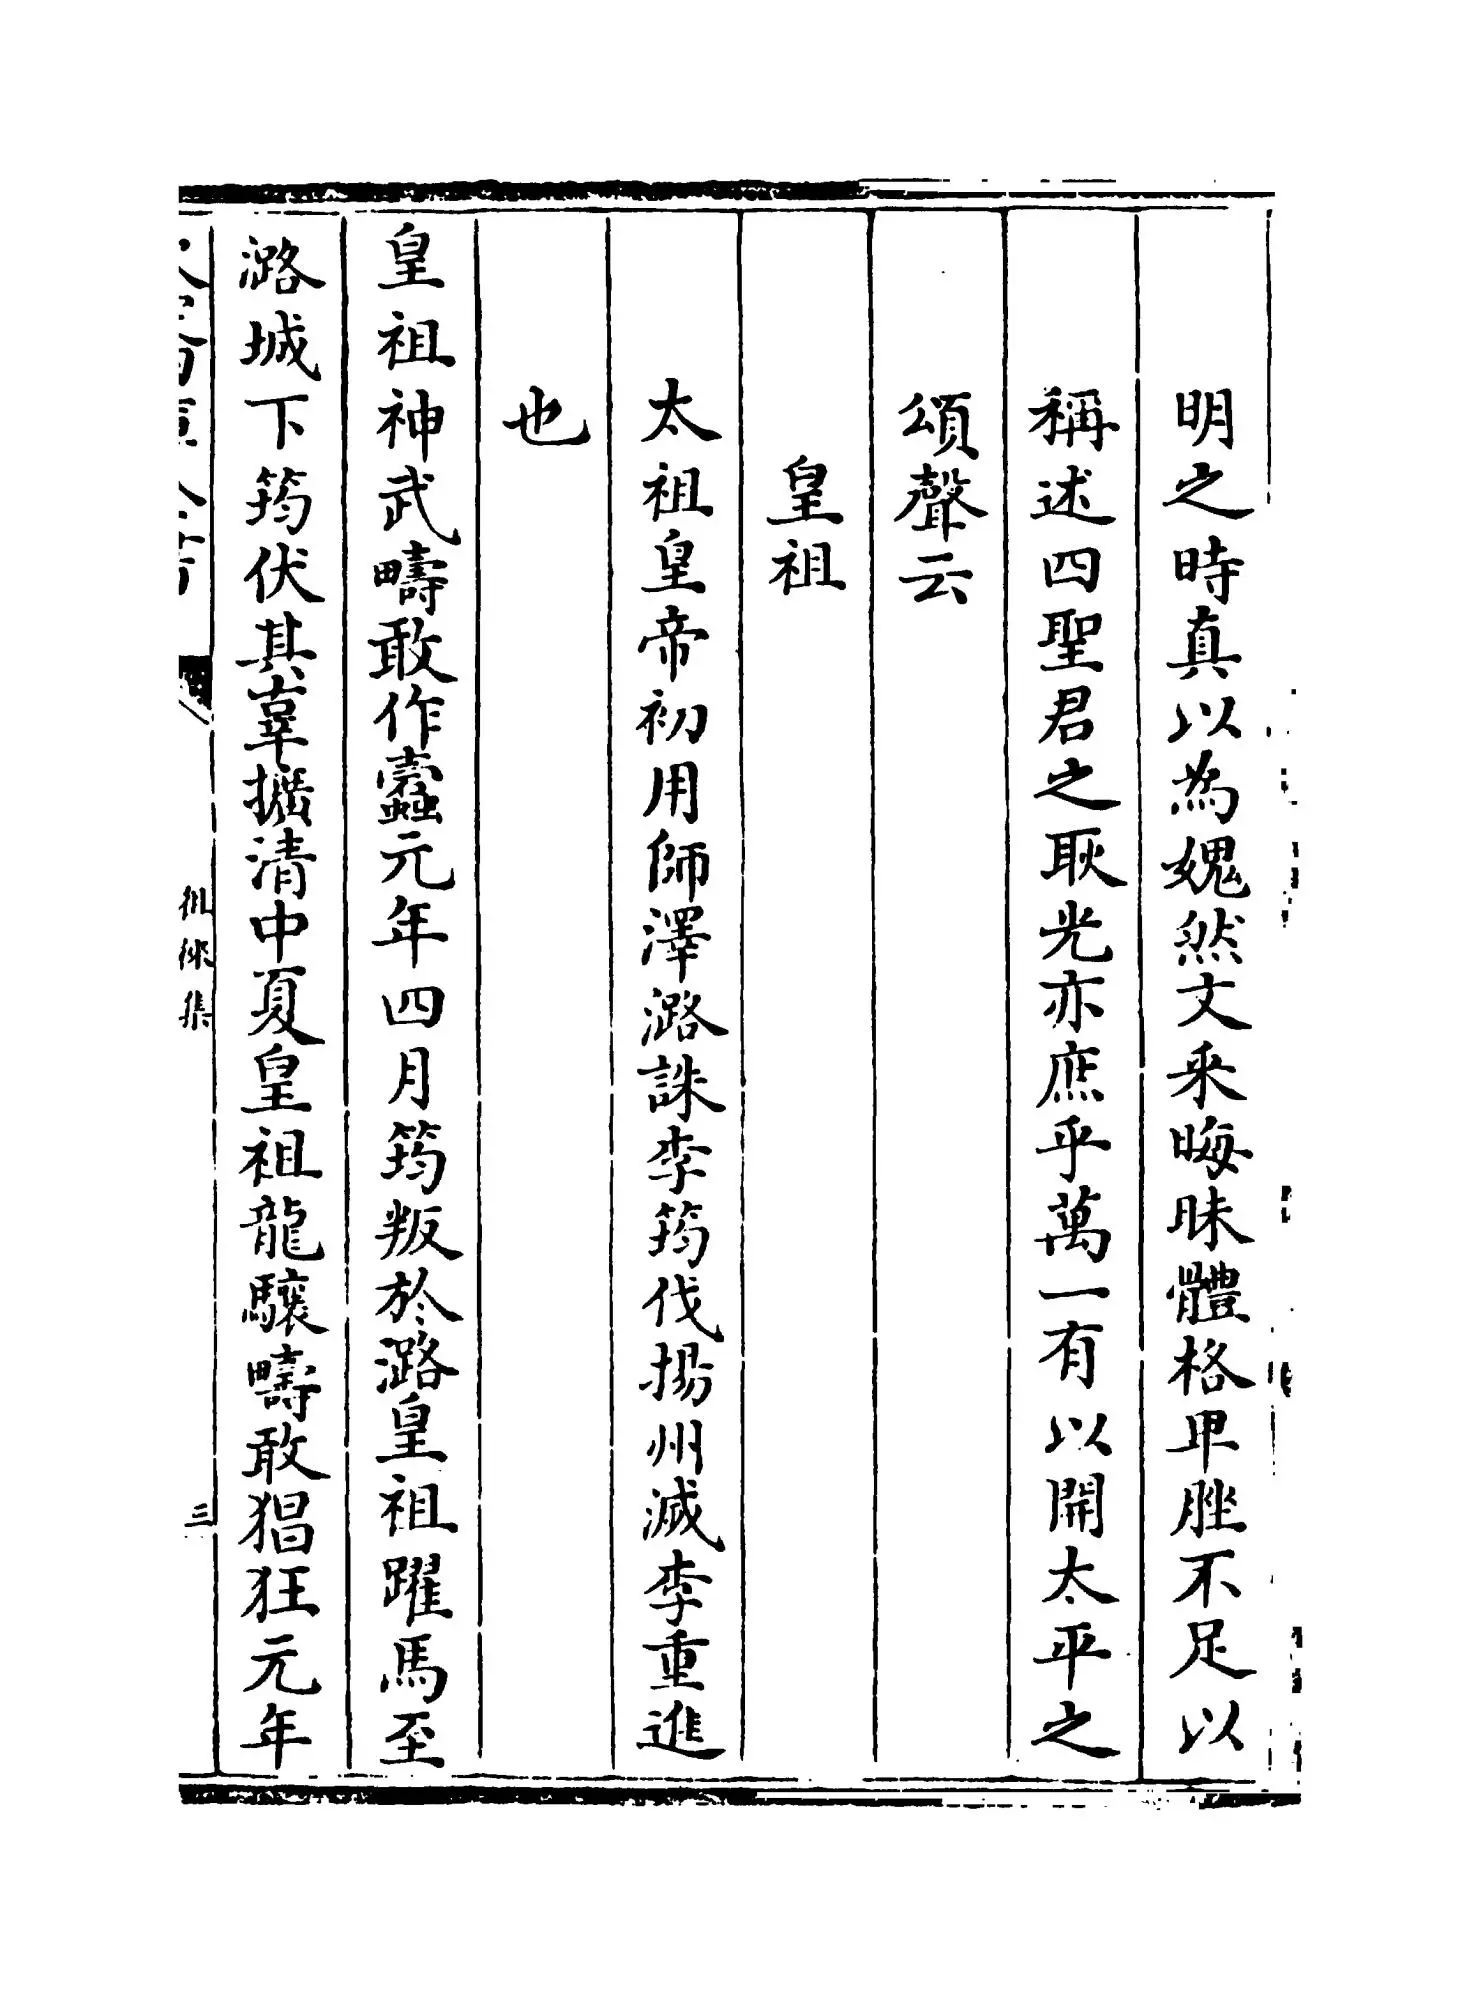 明之時真以為媿然文采晦昧體格卑脞不足以
稱述四聖君之耿光亦庶乎萬一有以開太平之
頌聲云
皇祖
太祖皇帝初用師澤潞誅李筠伐揚州滅李重進
也
皇祖神武疇敢作蠹元年四月筠叛於潞皇祖躍馬至
潞城下筠伏其辜擴清中夏皇祖龍驤疇敢猖狂元年
徂徠集
三